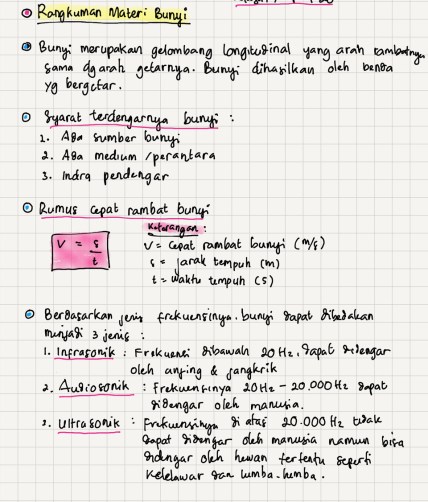 Rangkuman Materi Bunyi
Bunyi merupakan gelombang longitudinal yang arah rambatnya
sama dg arah getarnya. Bunyi dihasilkan oleh benda
yg bergetar.
Syarat terdengarnya bunyi :
1. Ada sumber bunyi
2. Ada medium /perantara
3. Indra pendengar
Rumus cepat rambat bunyi
Keterangan :
V = s/t
V = Cepat rambat bunyi (m/s)
s = jarak tempuh (m)
t = waktu tempuh (s)
Berdasarkan jenis frekuensinya. bunyi dapat dibedakan
menjadi 3 jenis :
1. Infrasonik : Frekuensi dibawah 20 Hz, dapat didengar
oleh anjing & jangkrik
2. Audiosonik : Frekuensinya 20 Hz - 20.000 Hz dapat
didengar oleh manusia.
3. Ultrasonik : Frekuensinya di atas 20.000 Hz tidak
dapat didengar oleh manusia namun bisa
didengar oleh hewan tertentu seperti
Kelelawar dan lumba-lumba.